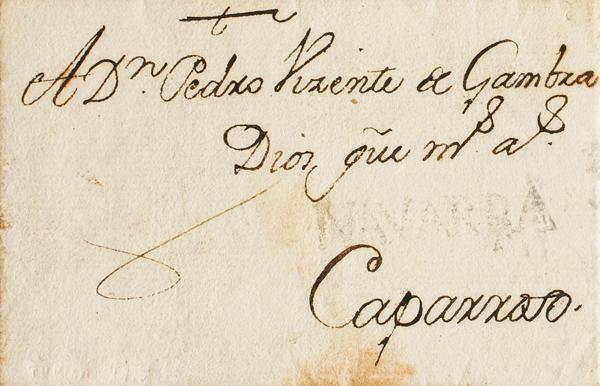 †
A Dn. Pedro Vizente de Gambra
Dios gũe ms. as.
NAVARRA
Caparroso.